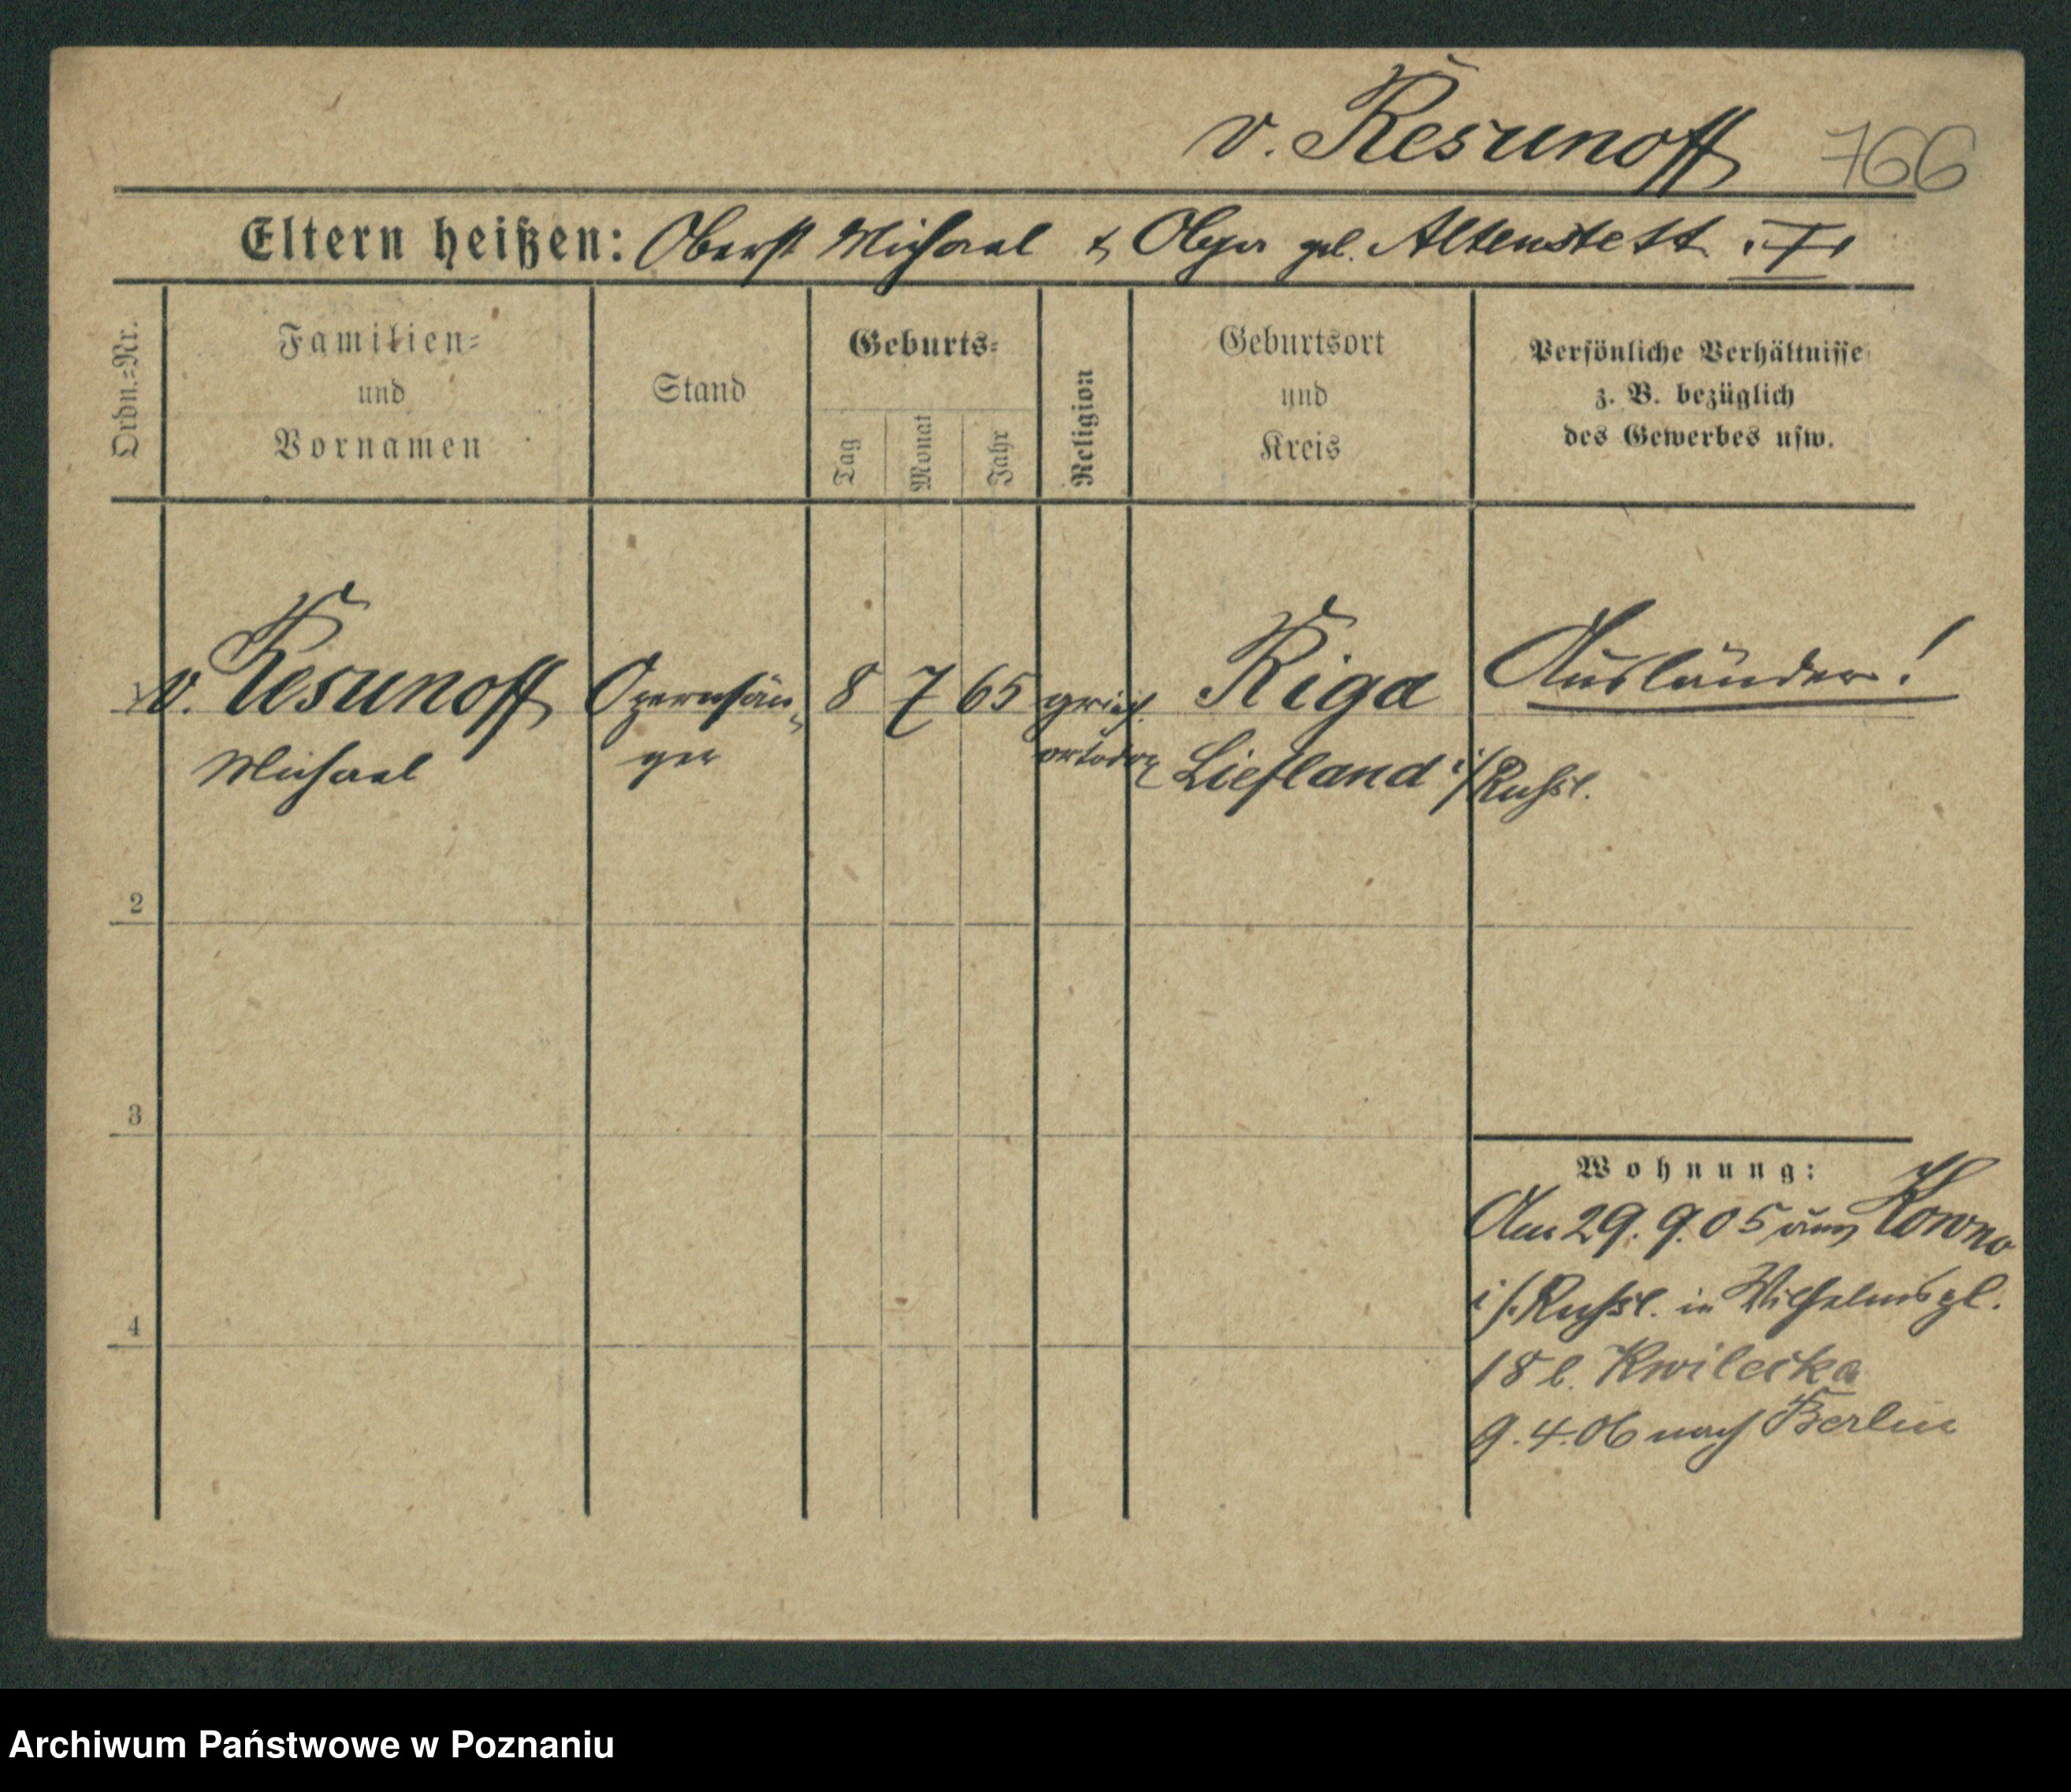 v. Resunoff 766
Eltern heißen: Oberst Michael & Olga geb. Altenstett
Ordn.-Nr.
Familien-
und
Vornamen
Stand
Geburts-
Tag
Monat
Jahr
Religion
Geburtsort
und
Kreis
Persönliche Verhältnisse
z. B. bezüglich
des Gewerbes usw.
1 v. Resunoff Opernsän- 8 7 65 griech. Riga Ausländer!
Michael ger ortodox Liefland i/Russl.
2
3
4
Wohnung:
Am 29.9.05 aus Kowno
i/Russl. in Wilhelmspl.
18 b. Kwilecka
9.4.06 nach Berlin
Archiwum Państwowe w Poznaniu